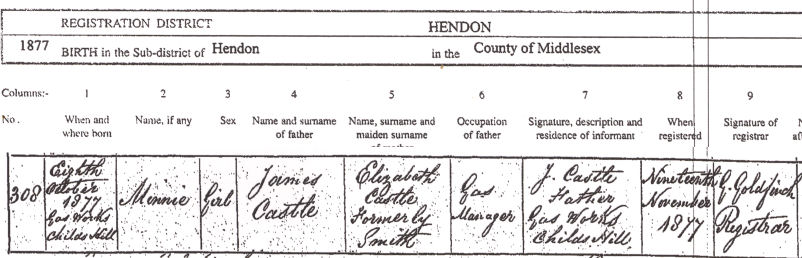 REGISTRATION DISTRICT HENDON
1877 BIRTH in the Sub-district of Hendon in the County of Middlesex
Columns:- 1 2 3 4 5 6 7 8 9
No. When and where born Name, if any Sex Name and surname of father Name, surname and maiden surname Occupation of father Signature, description and residence of informant When registered Signature of registrar
308
Eighth
October
1877
Gas Works
Childs Hill
Minnie
Girl
James
Castle
Elizabeth
Castle
Formerly
Smith
Gas
Manager
J. Castle
Father
Gas Works
Childs Hill
Nineteenth
November
1877
G. Goldfinch
Registrar